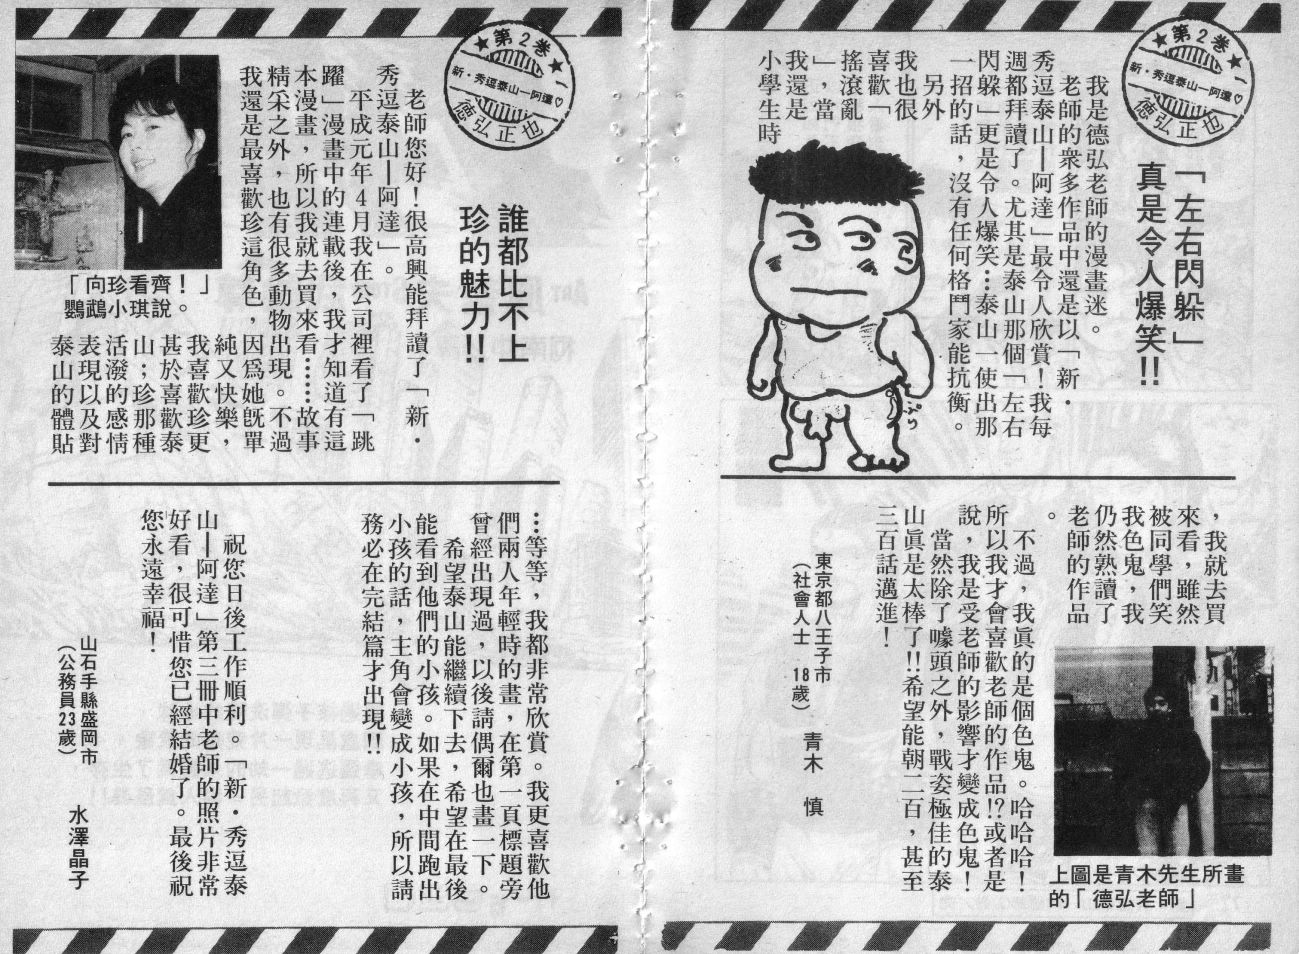 ★第2巻★
新・秀逗泰山—阿達♡
德弘正也
「左右閃躲」
真是令人爆笑!!
我是德弘老師的漫畫迷。
老師的衆多作品中還是以「新・
秀逗泰山—阿達」最令人欣賞！我每
週都拜讀了。尤其是泰山那個「左右
閃躲」更是令人爆笑…泰山一使出那
一招的話，沒有任何格鬥家能抗衡。
另外
我也很
喜歡「
搖滾亂
」，當
我還是
小學生時
，我就去買
來看，雖然
被同學們笑
我色鬼，我
仍然熟讀了
老師的作品
。
不過，我眞的是個色鬼。哈哈哈！
所以我才會喜歡老師的作品!?或者是
說，我是受老師的影響才變成色鬼！
當然除了噱頭之外，戰姿極佳的泰
山眞是太棒了!!希望能朝二百，甚至
三百話邁進！
東京都八王子市
（社會人士　18歲）
青木　慎
上圖是青木先生所畫
的「德弘老師」
★第2巻★
新・秀逗泰山—阿達♡
德弘正也
誰都比不上
珍的魅力!!
老師您好！很高興能拜讀了「新・
秀逗泰山—阿達」。
平成元年4月我在公司裡看了「跳
躍」漫畫中的連載後，我才知道有這
本漫畫，所以我就去買來看……故事
精采之外，也有很多動物出現。不過
我還是最喜歡珍這角色，因爲她旣單
純又快樂，
我喜歡珍更
甚於喜歡泰
山；珍那種
活潑的感情
表現以及對
泰山的體貼
「向珍看齊！」
鸚鵡小琪說。
…等等，我都非常欣賞。我更喜歡他
們兩人年輕時的畫，在第一頁標題旁
曾經出現過，以後請偶爾也畫一下。
希望泰山能繼續下去，希望在最後
能看到他們的小孩。如果在中間跑出
小孩的話，主角會變成小孩，所以請
務必在完結篇才出現!!
祝您日後工作順利「新・秀逗泰
山—阿達」第三冊中老師的照片非常
好看，很可惜您已經結婚了。最後祝
您永遠幸福！
山石手縣盛岡市
（公務員23歲）
水澤晶子